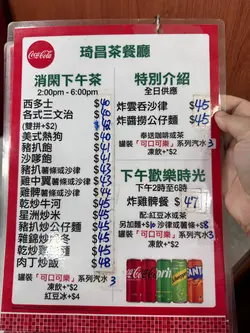 Coca-Cola
琦昌茶餐廳
消閑下午茶
2:00pm - 6:00pm
西多士 $40
各式三文治 $40
(雙拼+$2)
美式熱狗 $40
豬扒飽 $41
沙嗲飽 $41
豬扒薯條或沙律 $43
雞中翼薯條或沙律 $43
雞髀薯條或沙律 $44
乾炒牛河 $45
星洲炒米 $45
豬扒炒公仔麵 $45
雜錦炒 $45
乾炒 $45
肉丁炒飯 $48
罐裝「可口可樂」系列汽水 3
凍飲+$2
紅豆冰+$4
特別介紹
全日供應
炸雲吞沙律 $45
炸醬撈公仔麵 $45
奉送咖啡或茶
罐裝「可口可樂」系列汽水 3
凍飲+$2
下午歡樂時光
下午2時至6時
炸雞髀餐 $47
配:紅豆冰或茶
另加雞 沙律或薯條+$8
罐裝「可口可樂」系列汽水 3
凍飲+$2